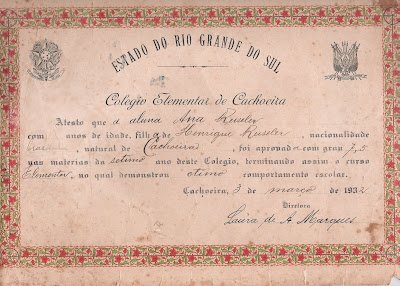 ESTADO DO RIO GRANDE DO SUL
Colegio Elementar de Cachoeira
Atesto que a aluna Ana Kessler
com anos de idade, filha de Henrique Kessler, nacionalidade
natural de Cachoeira, foi aprovada com grau 7,5
nas materias do setimo ano deste Colegio, terminando assim o curso
Elementar, no qual demonstrou otimo comportamento escolar.
Cachoeira, 3 de março de 1932
Diretora
Laura de A. Marques